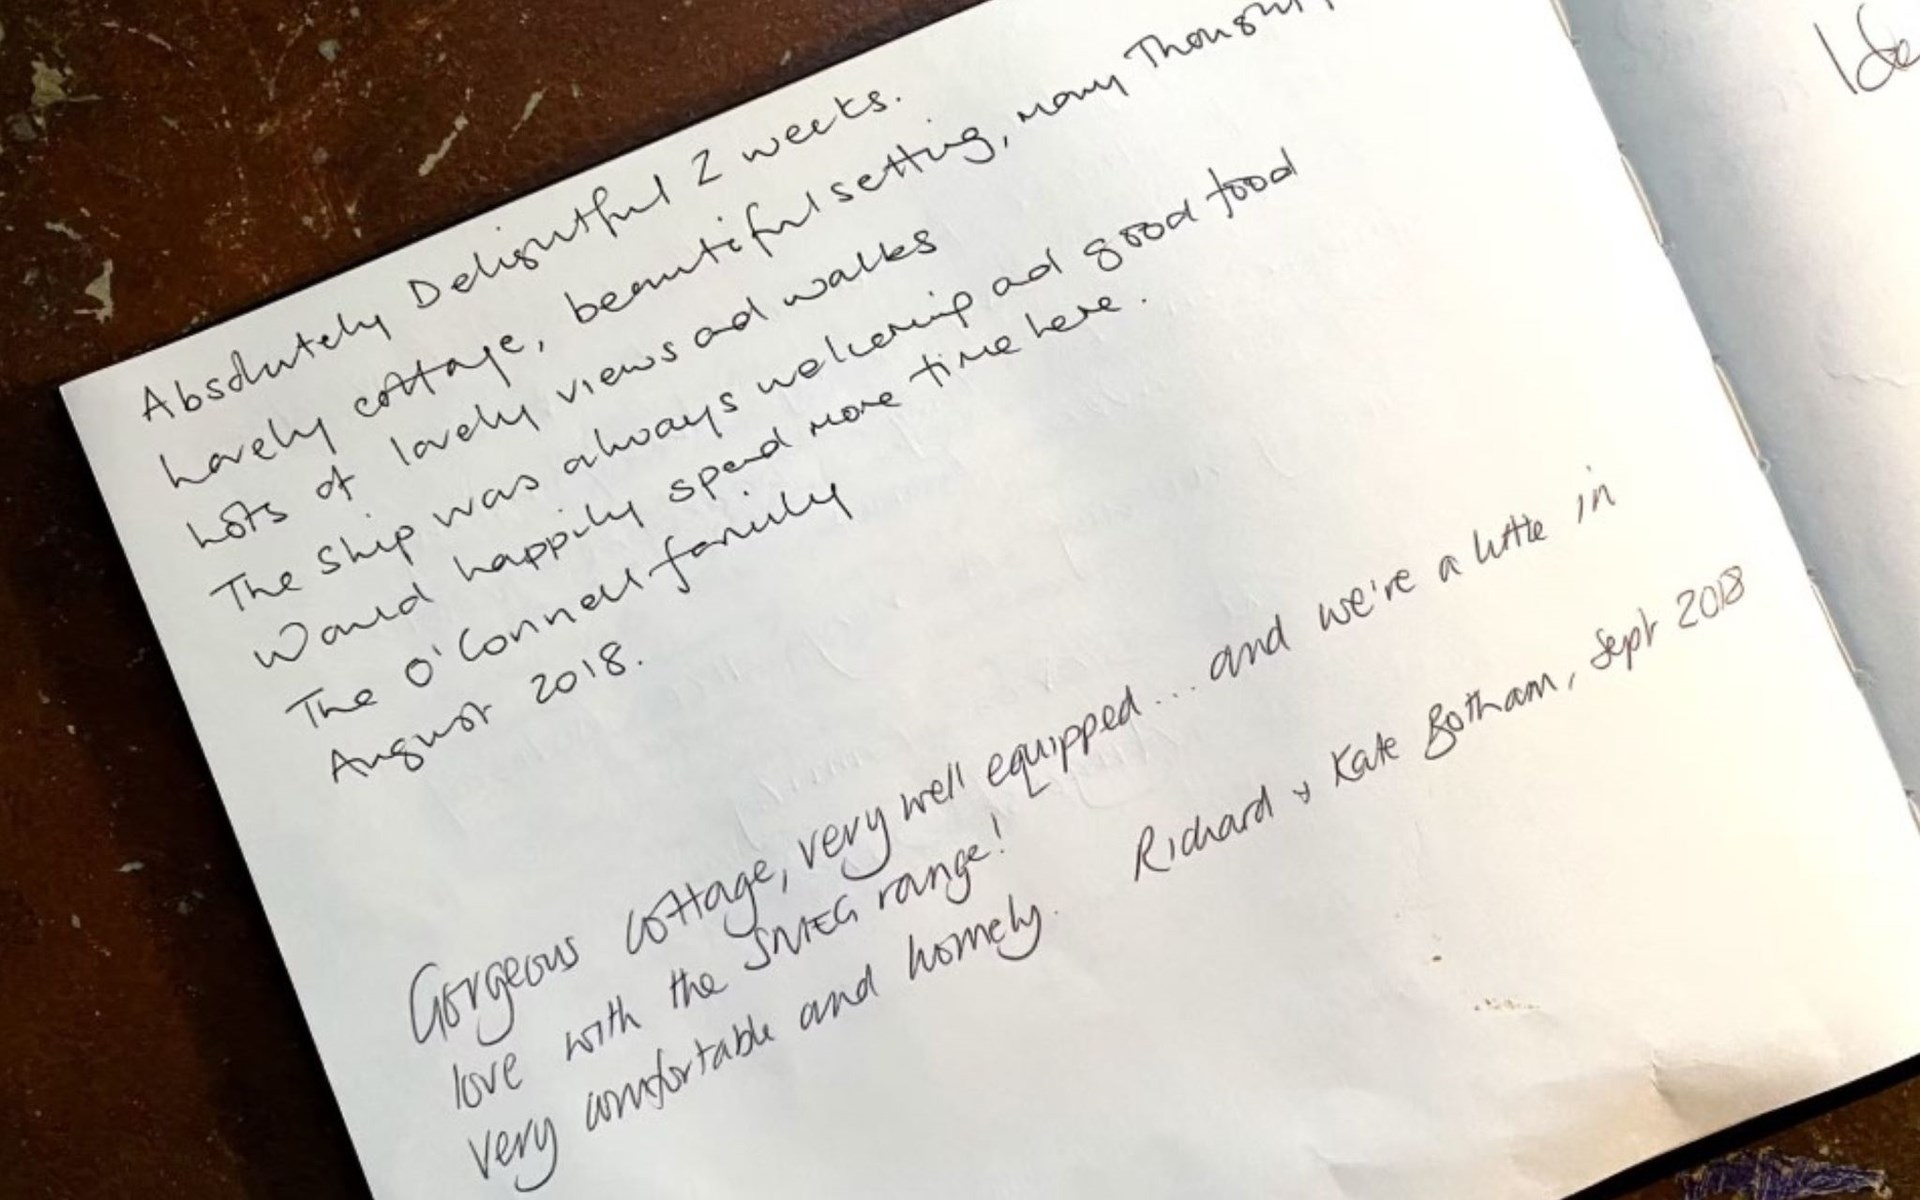 Absolutely Delightful 2 weeks.
Lovely cottage, beautiful setting, many
Lots of lovely views ad walks
The Ship was always welcoming ad good food
Would happily spend more time here.
The O'Connell family
August 2018.
Gorgeous cottage, very well equipped... and we're a little in
love with the SMEG range!
Very comfortable and homely. Richard & Kate Botham, Sept 2018